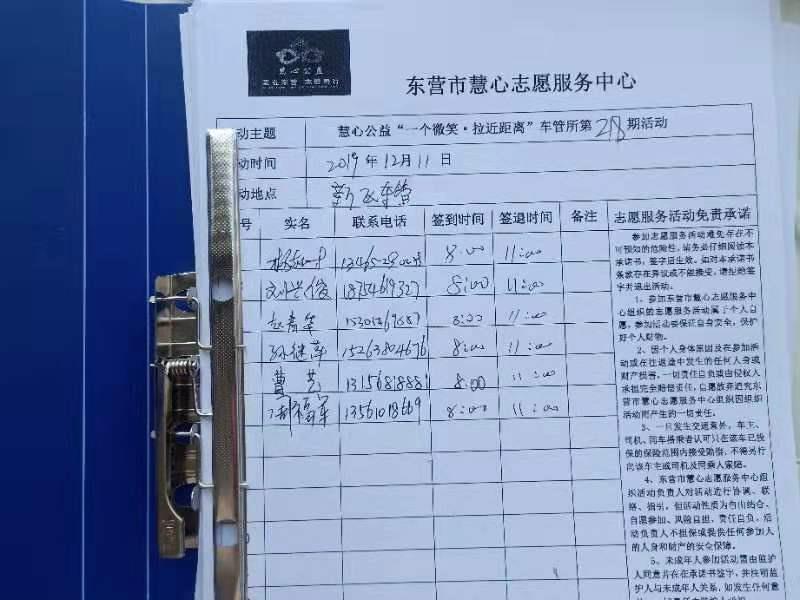 慧心公益
东营市慧心志愿服务中心
动主题 慧心公益“一个微笑·拉近距离”车管所第218期活动
动时间 2019年12月11日
动地点
号 实名 联系电话 签到时间 签退时间 备注 志愿服务活动免责承诺
8:00 11:00
8:00 11:00
8:00 11:00
孙继萍 15263804676 8:00 11:00
曹艺 8:00 11:00
福军 13561018669 8:00 11:00
参加志愿服务活动难免存在不
可预知的危险性，请务必仔细阅读本
承诺书，签字后生效。如对本承诺书
条款存在异议或不能接受，请拒绝签
字并退出活动。
1、参加东营市慧心志愿服务中
心组织的志愿服务活动属于个人自
愿，参加活动要保证自身安全，保护
好个人财物。
2、因个人身体原因及在参加活
动或在往返途中发生的任何人身或
财产损害，一切责任自负或由侵权人
承担完全赔偿责任，自愿放弃追究东
营市慧心志愿服务中心组织因组织
活动而产生的一切责任。
3、一旦发生交通意外，车主、
司机、同车搭乘者认可只在该车已投
保的保险范围内接受赔偿，不得另行
向该车主或司机及同乘人索赔。
4、东营市慧心志愿服务中心组
织活动负责人对活动进行协调、联
络、指引，但活动性质为自由结合、
自愿参加、风险自担、责任自负，活
动负责人不担保或提供任何参加人
的人身和财产的安全保障。
5、未成年人参加活动需由监护
人同意并在承诺书签字，并注明监
护人与未成年人关系，如发生任何意